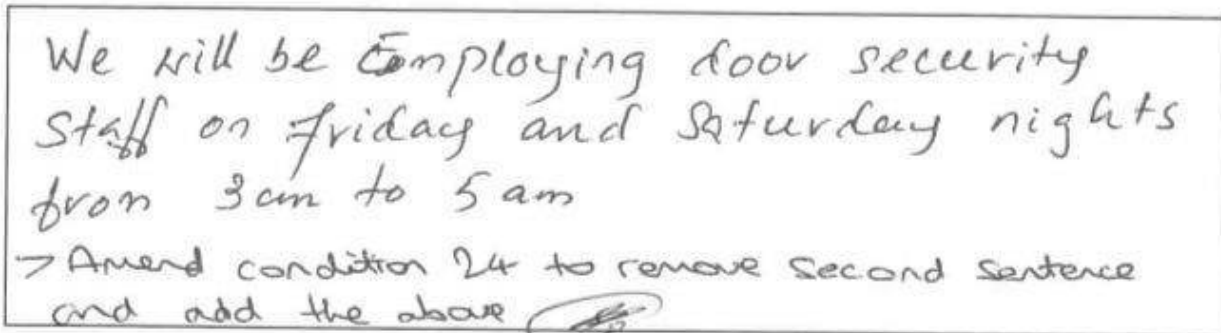 We will be Employing door security
Staff on friday and Saturday nights
from 3am to 5 am
→ Amend condition 24 to remove second sentence
and add the above